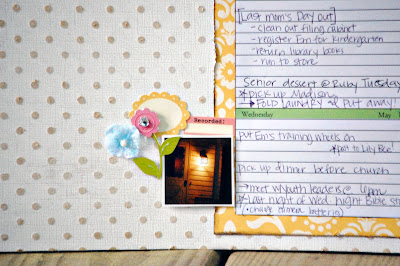 Last mom's Day out
- clean out filing cabinet
- register Em for kindergarten
- return library books
- run to store
Senior desert @ Ruby Tuesday
pick up Madison
FOLD LAUNDRY & PUT away!
Recorded:
Wednesday May
put Em's training wheels on
pick up dinner before church
→ meet w/youth leaders @ 6pm
*Last night of Wed. night Bible